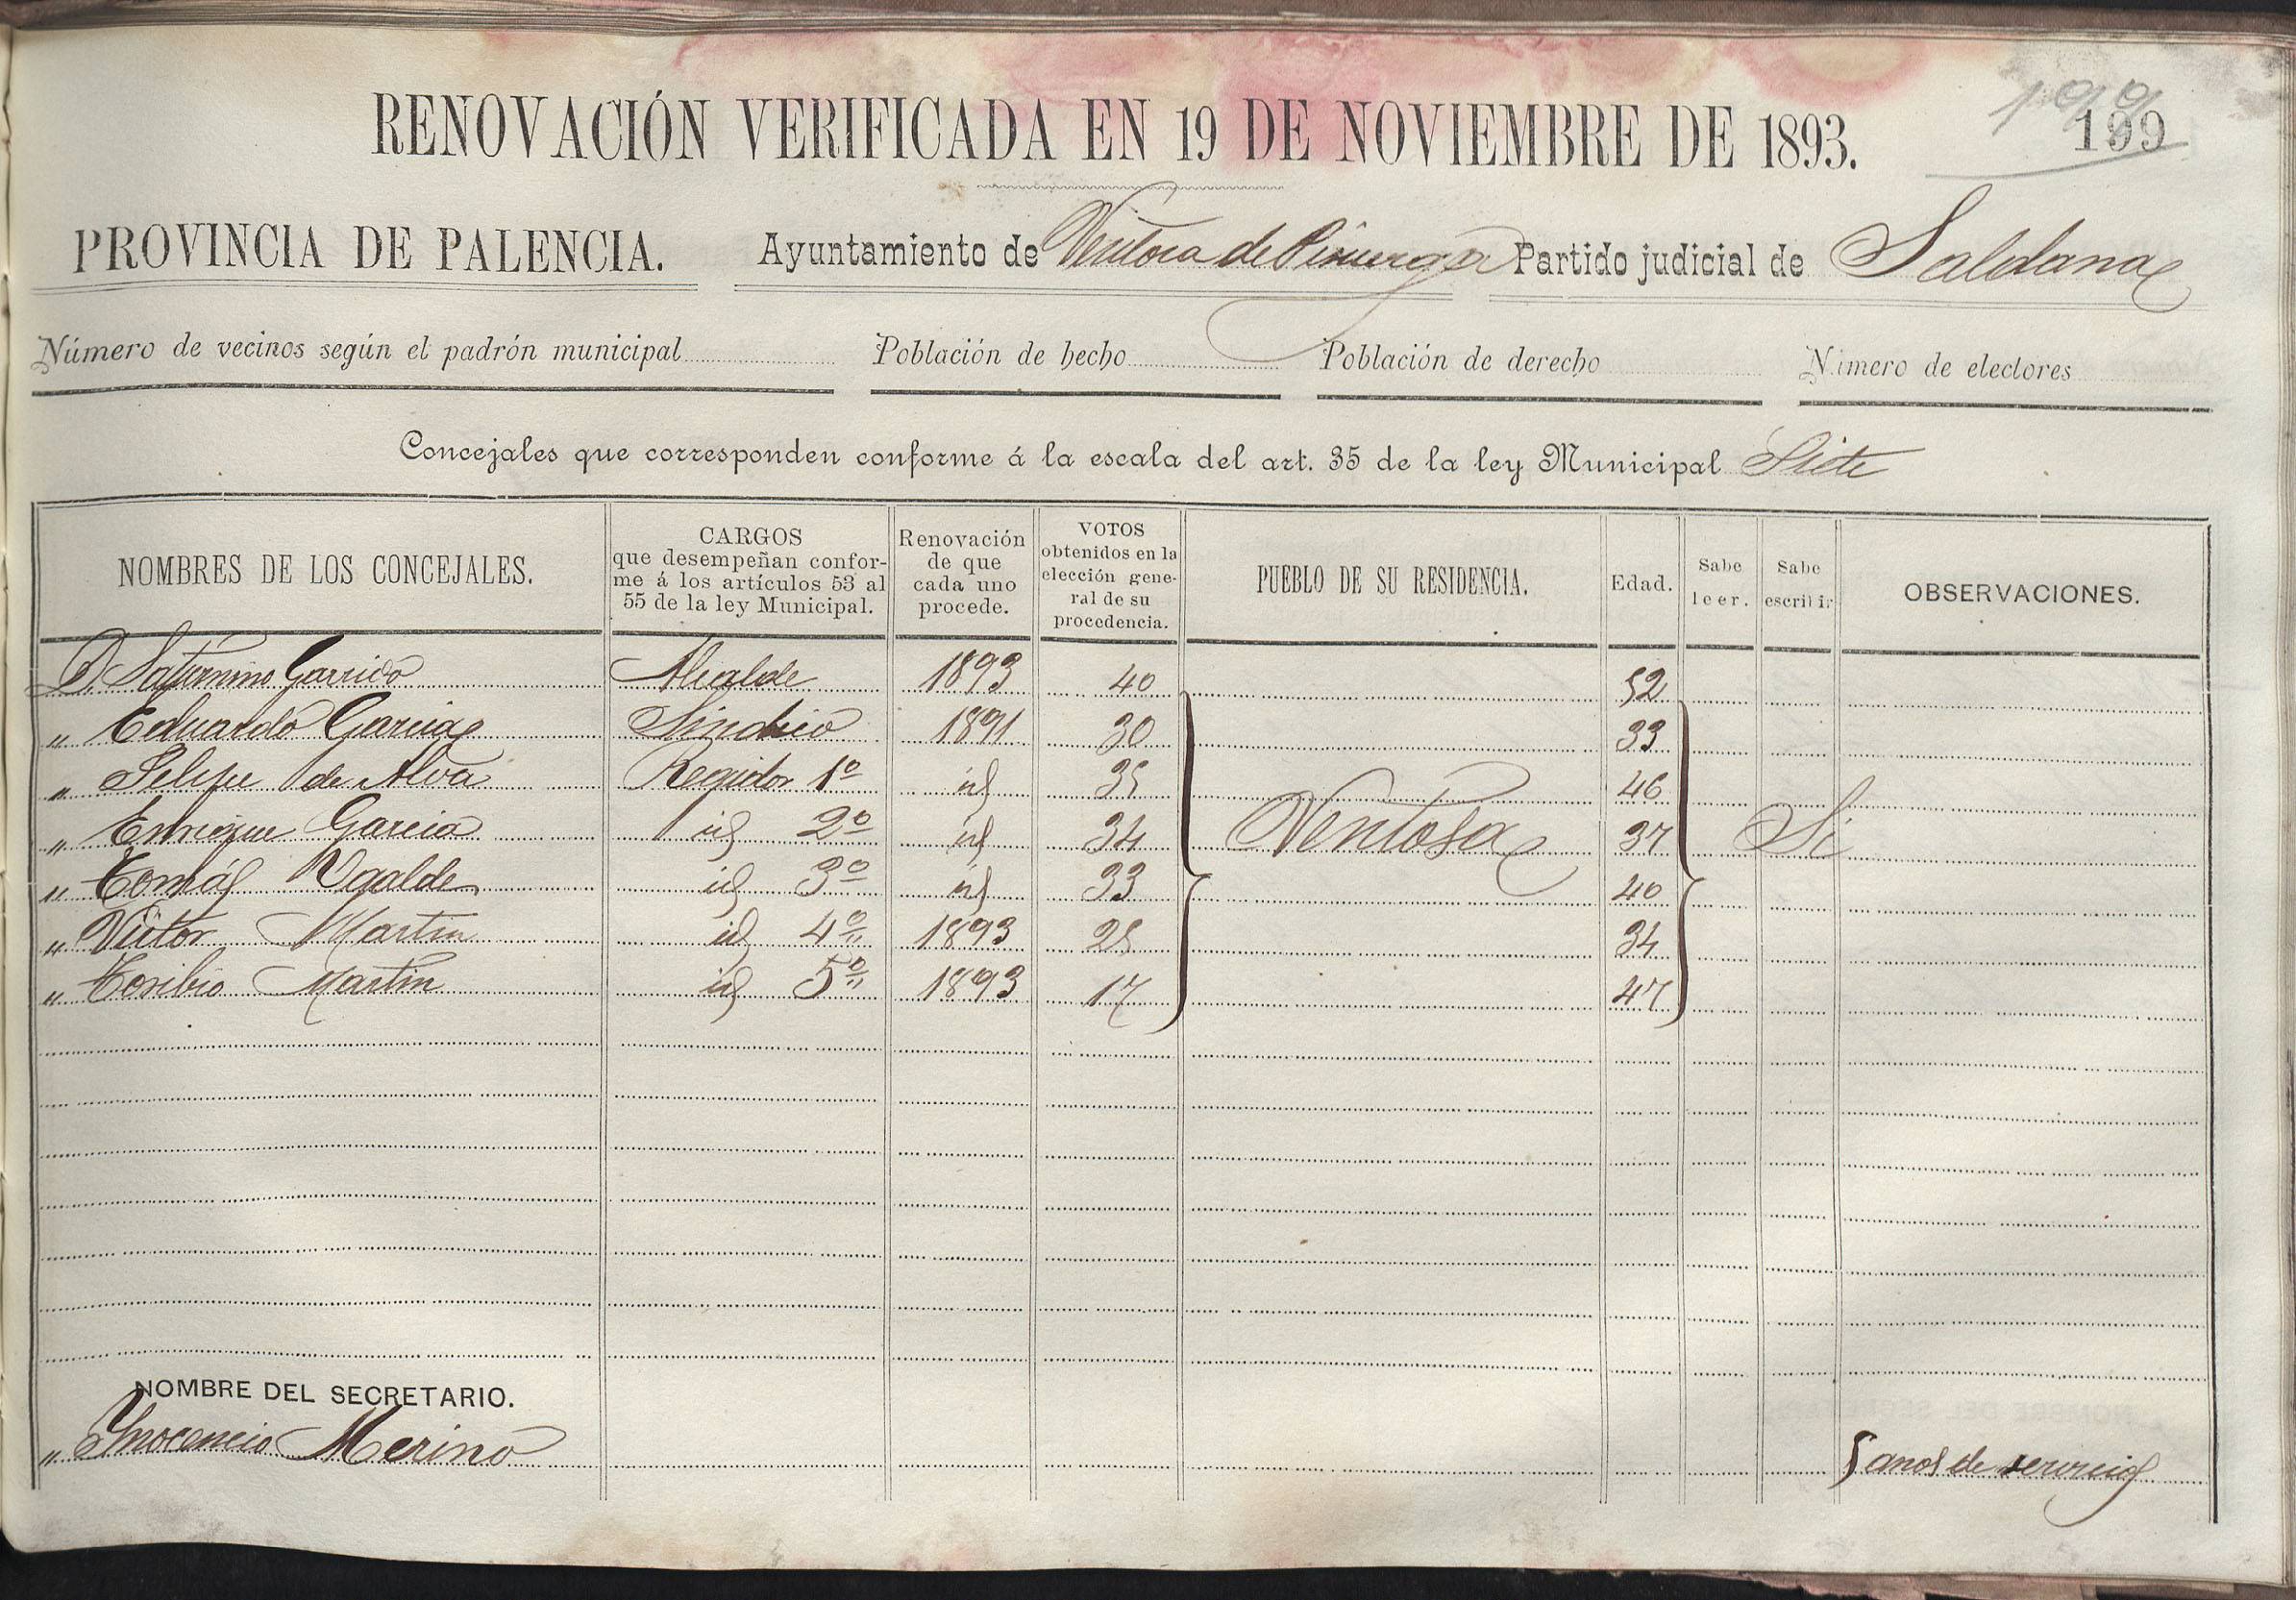 RENOVACIÓN VERIFICADA EN 19 DE NOVIEMBRE DE 1893.
199
199
PROVINCIA DE PALENCIA. Ayuntamiento de Ventosa de Pisuerga Partido judicial de Saldana
Número de vecinos según el padrón municipal Población de hecho Población de derecho Número de electores
Concejales que corresponden conforme á la escala del art. 35 de la ley Municipal Siete
NOMBRES DE LOS CONCEJALES. CARGOS que desempeñan conforme á los artículos 53 al 55 de la ley Municipal. Renovación de que cada uno procede. VOTOS obtenidos en la elección general de su procedencia. PUEBLO DE SU RESIDENCIA. Edad. Sabe leer. Sabe escribir OBSERVACIONES.
D. Saturnino Garrido Alcalde 1893 40 52
" Eduardo Garcia Sindico 1891 30 33
" Felipe de Alva Regidor 1º id 35 46
" Enrique Garcia id 2º id 34 Ventosa 37 Si
" Tomás Ugalde id 3º id 33 40
" Victor Martin id 4º 1893 25 34
" Toribio Martin id 5º 1893 17 47
NOMBRE DEL SECRETARIO.
" Ynocencio Merino 5 anos de servicios